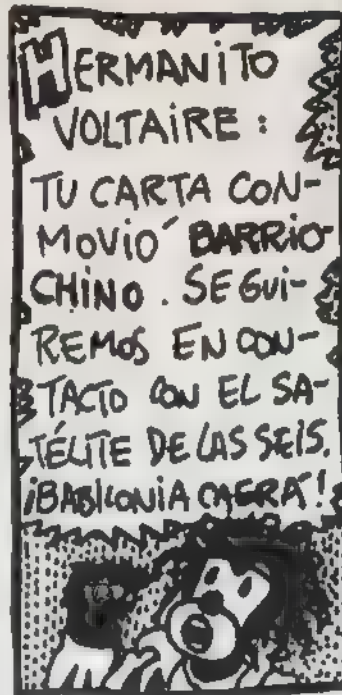 HERMANiTO
VOLTAiRE:
TU CARTA CON-
MOViÓ BARRiO
CHiNO. SEGUi-
REMOS EN CON-
TACTO CON EL SA-
TÉLiTE DE LAS SEiS.
¡BABiLONiA CAERÁ!